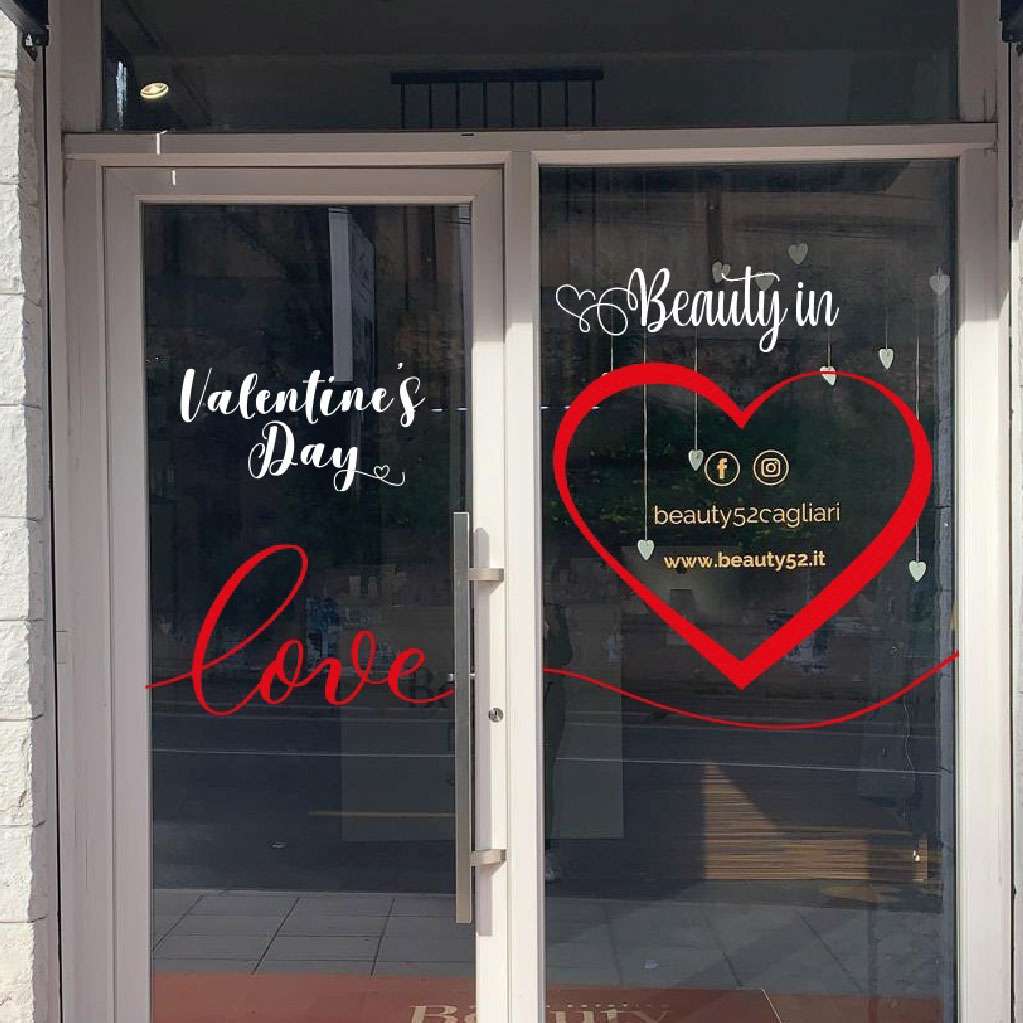 Valentine's
Day
love
Beauty in
beauty52cagliari
www.beauty52.it
Beauty